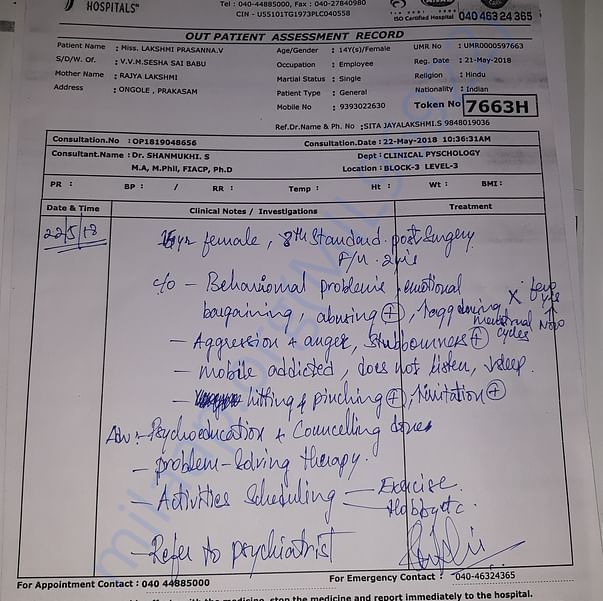 HOSPITALS™
Tel : 040-44885000, Fax : 040-27840980
CIN - U55101TG1973PLC040558
ISO Certified Hospital
040 463 24 365
OUT PATIENT ASSESSMENT RECORD
Patient Name : Miss. LAKSHMI PRASANNA.V
Age/Gender : 14Y(s)/Female
UMR No : UMR0000597663
S/D/W. Of. : V.V.M.SESHA SAI BABU
Occupation : Employee
Reg. Date : 21-May-2018
Mother Name : RAJYA LAKSHMI
Martial Status : Single
Religion : Hindu
Address : ONGOLE , PRAKASAM
Patient Type : General
Nationality : Indian
Mobile No : 9393022630
Token No 7663H
Ref.Dr.Name & Ph. No :SITA JAYALAKSHMI.S 9848019036
Consultation.No : OP1819048656
Consultation.Date : 22-May-2018 10:36:31AM
Consultant.Name : Dr. SHANMUKHI. S
Dept : CLINICAL PYSCHOLOGY
M.A, M.Phil, FIACP, Ph.D
Location : BLOCK-3 LEVEL-3
PR : BP : / RR : Temp : Ht : Wt : BMI:
Date & Time Clinical Notes / Investigations Treatment
22/5/18
female, 8th Standard. post Surgery
F/u.
c/o - Behavioural problems, emotional
bargaining, abusing (+), during X
menstrual cycles Now
- Aggression + anger, stubbornness (+)
- mobile addicted, does not listen, sleep.
- hitting & pinching (+),
Adv:- Psychoeducation & Councelling done
- problem-solving therapy.
- Activities Scheduling — Exercise.
Hobby etc.
- Refer to psychiatrist
For Appointment Contact : 040 44885000
For Emergency Contact : 040-46324365
the medicine, stop the medicine and report immediately to the hospital.